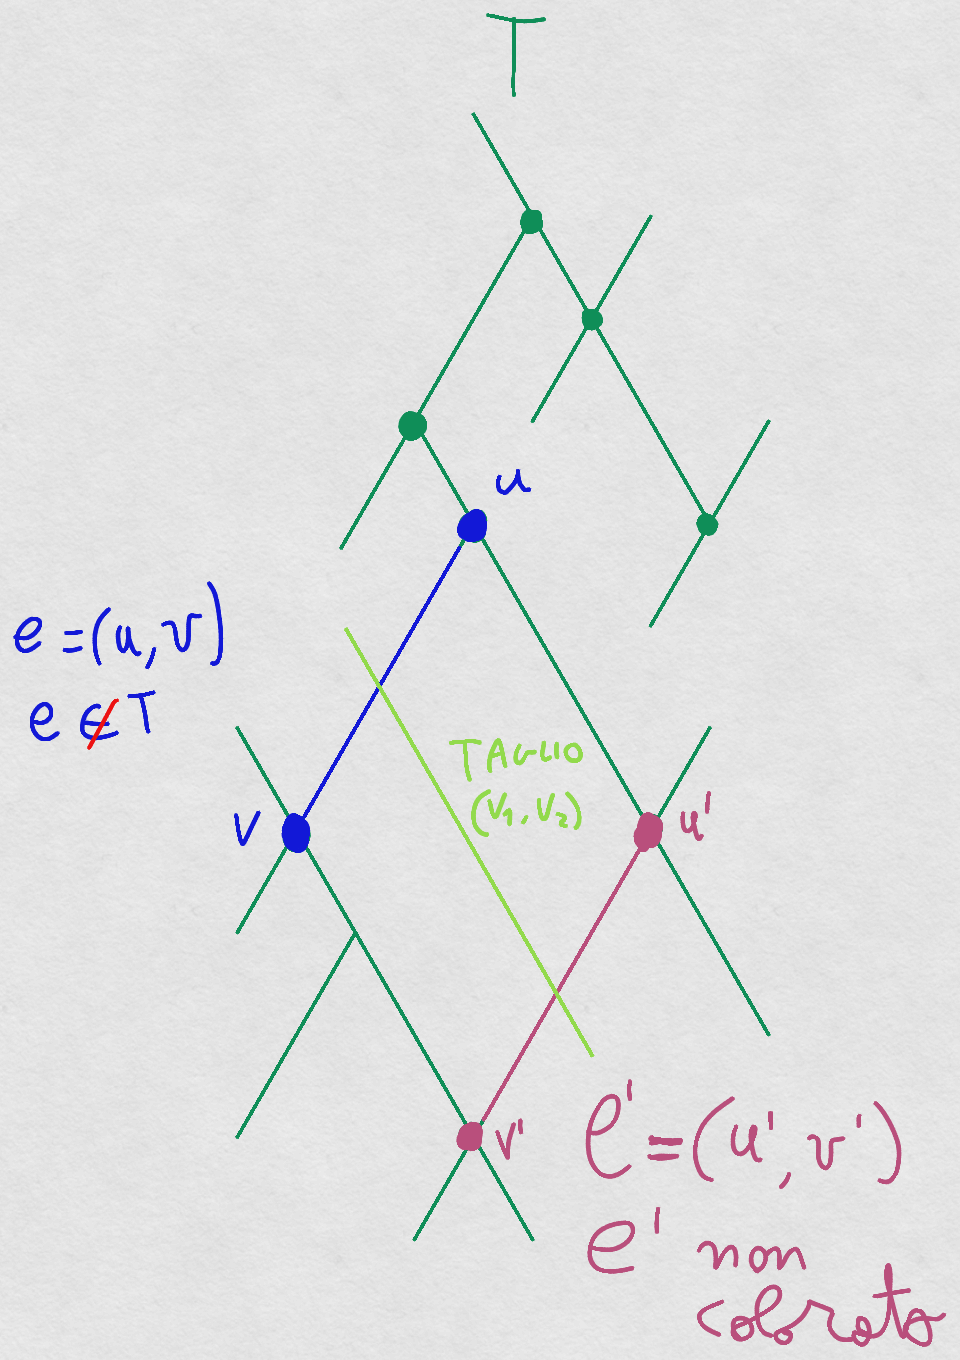 T
u
e = (u, v)
e ∉ T
TAGLIO
(V₁, V₂)
V
u'
v'
e' = (u', v')
e' non
colorato